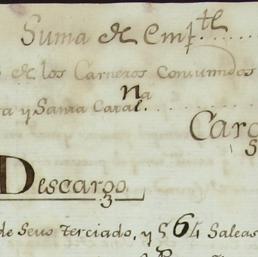 Suma de Cmp.tl
de los Carneros Consumidos
a y Santa Catal.na
Carg
Descargo
de Sevo Terciado, y 564 Saleas